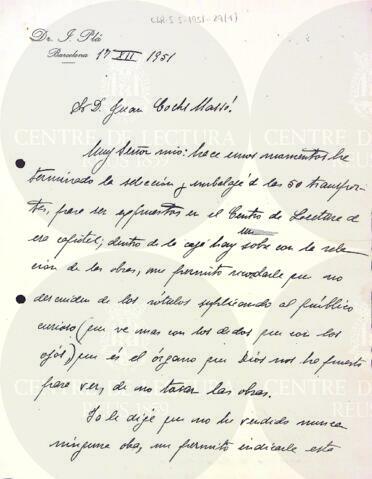 CLR-S.5-1951-29(1)
Dr. J. Plá
Barcelona 17 XII 1951
Sr D. Juan Cochs Massó.
Muy Señor mio: hace unos momentos he
terminado la selección y embalaje de las 50
para ser expuestos en el Centro de Lectura de
esa capital; dentro de la caja hay un sobre con la rela-
ción de las obras, me permito recordarle que no
descuiden de los rótulos suplicando al público
curioso (que ve mas con los dedos que con los
ojos) que es el órgano que Dios nos ha puesto
para ver, de no tocar las obras.
Ya le dije que no he vendido nunca
ninguna obra, me permito indicarle esta
CENTRE DE LECTURA
REUS 1859